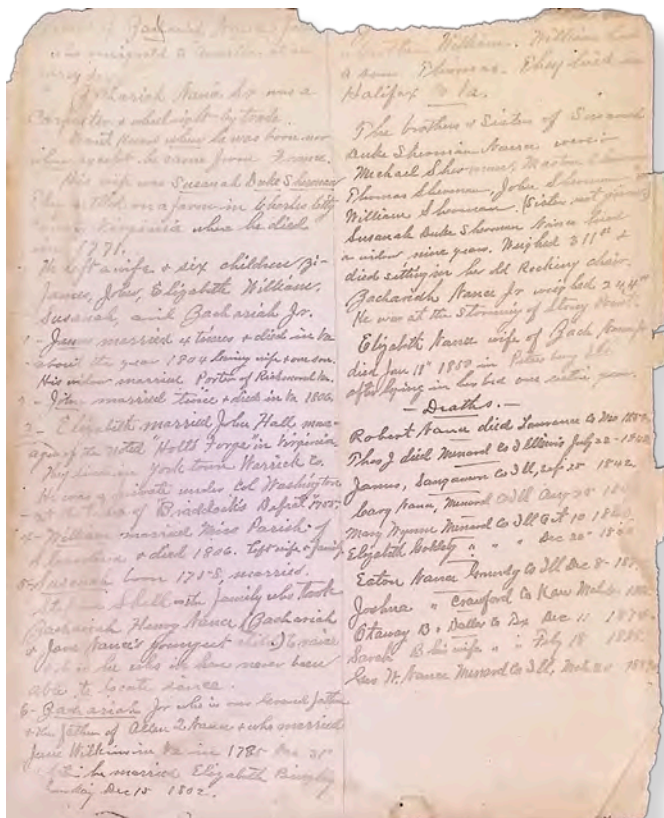 who emigrated to America at an
Zachariah Nance Sr was a
Carpenter & wheelright by trade.
Don't know when he was born nor
when except he came from France.
His wife was Susanah Duke Sherman
They settled on a farm in Charles City
County Virginia where he died
in 1771.
He left a wife & six children
James, John, Elizabeth William,
Susanah, and Zachariah Jr.
1- James married 4 times & died in Va
about the year 1804 leaving wife & one son.
His widow married Porter of Richmond Va.
2- John married twice & died in Va 1806.
3- Elizabeth married John Hall man-
ager of the noted "Holts Forge" in Virginia
They lived in York town Warrick Co.
He was a private under Col Washington
at the time of Braddock's Defeat 1755.
4- William married Miss Parish of
& died 1806. Left wife & family
5- Susanah born 175 married
Shell the family who took
Zachariah Henry Nance (Zachariah
& Jane Nance's youngest child) to raise
have never been
able to locate since.
6- Zachariah Jr who is our Grand father
& the father of Allen Q Nance & who married
Jane Wilkins in Va in 1785 Dec 25
he married Elizabeth Bingley
Sunday Dec 15 1802.
brother William. William had
a son Thomas. They lived in
Halifax Co Va.
The brothers & Sister of Susanah
Duke Sherman Nance were:
Michael Sherman,
Thomas Sherman, John Sherman
William Sherman. (Sister not given)
Susanah Duke Sherman Nance lived
a widow nine years. Weighed 311 &
died sitting in her old Rocking chair.
Zachariah Nance Jr weighed 244
He was at the Storming of Stony Point.
Elizabeth Nance wife of Zach Nance Jr
died Jan 18 1850 in Petersburg Ills
after lying in her bed one entire year.
- Deaths. -
Robert Nance died Lawrence Co Mo
Thos J died Menard Co Illinois July 22 - 1842
James, Sangamon Co Ill, 25 1842.
Nance, Menard Co Ill Aug
Mary Wynne Menard Co Ill Oct 10
Elizabeth " " " Dec 20
Eaton Nance Grundy Co Ill Dec 8 -
Joshua " Crawford Co Kan
Otaway B. Dallas Co Tx Dec 11 187
Sarah B his wife " " Feby 18
Geo W. Nance Menard Co Ill, Mch 20